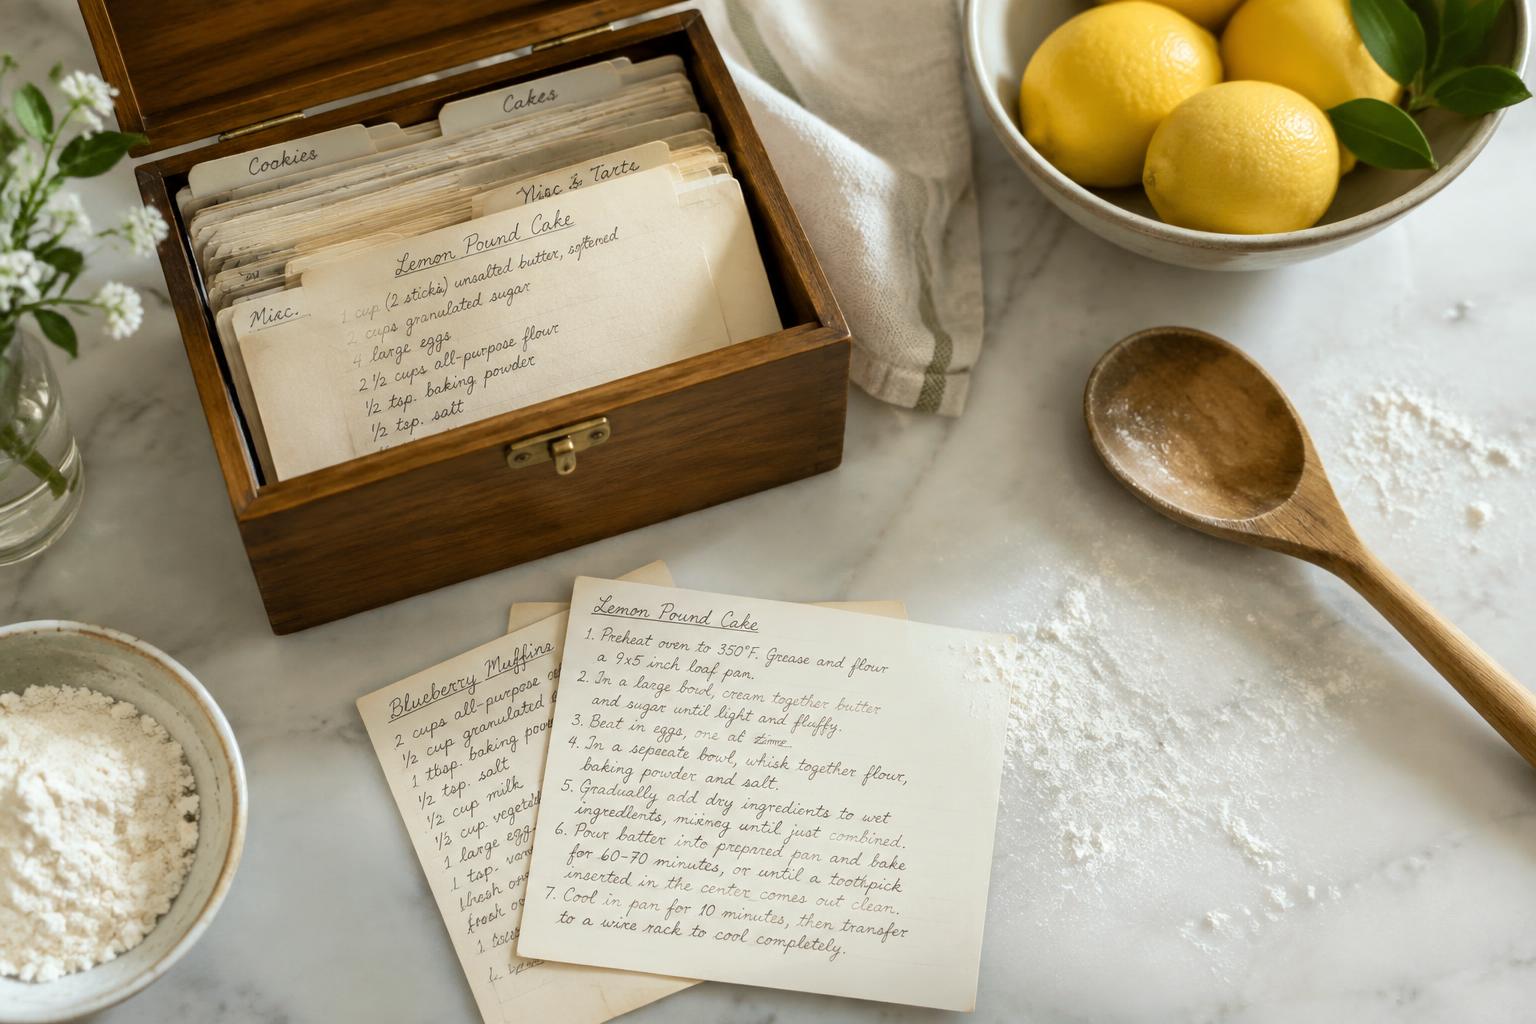 Cakes
Cookies
Misc & Tarts
Misc.
Lemon Pound Cake
1 cup (2 sticks) unsalted butter, softened
2 cups granulated sugar
4 large eggs
2 1/2 cups all-purpose flour
1/2 tsp. baking powder
1/2 tsp. salt
Blueberry Muffins
2 cups all-purpose
1/2 cup granulated
1 tbsp. baking
1/2 tsp. salt
1/2 cup milk
1/2 cup
1 large egg
1 tsp.
Lemon Pound Cake
1. Preheat oven to 350°F. Grease and flour
a 9x5 inch loaf pan.
2. In a large bowl, cream together butter
and sugar until light and fluffy.
3. Beat in eggs, one at
4. In a sepecate bowl, whisk together flour,
baking powder and salt.
5. Gradually add dry ingredients to wet
ingredlents, until just combined.
6. Pour batter into prepared pan and bake
for 60-70 minutes, or until a toothpick
inserted in the center comes out clean.
7. Cool in pan for 10 minutes, then transfer
to a wire rack to cool completely.